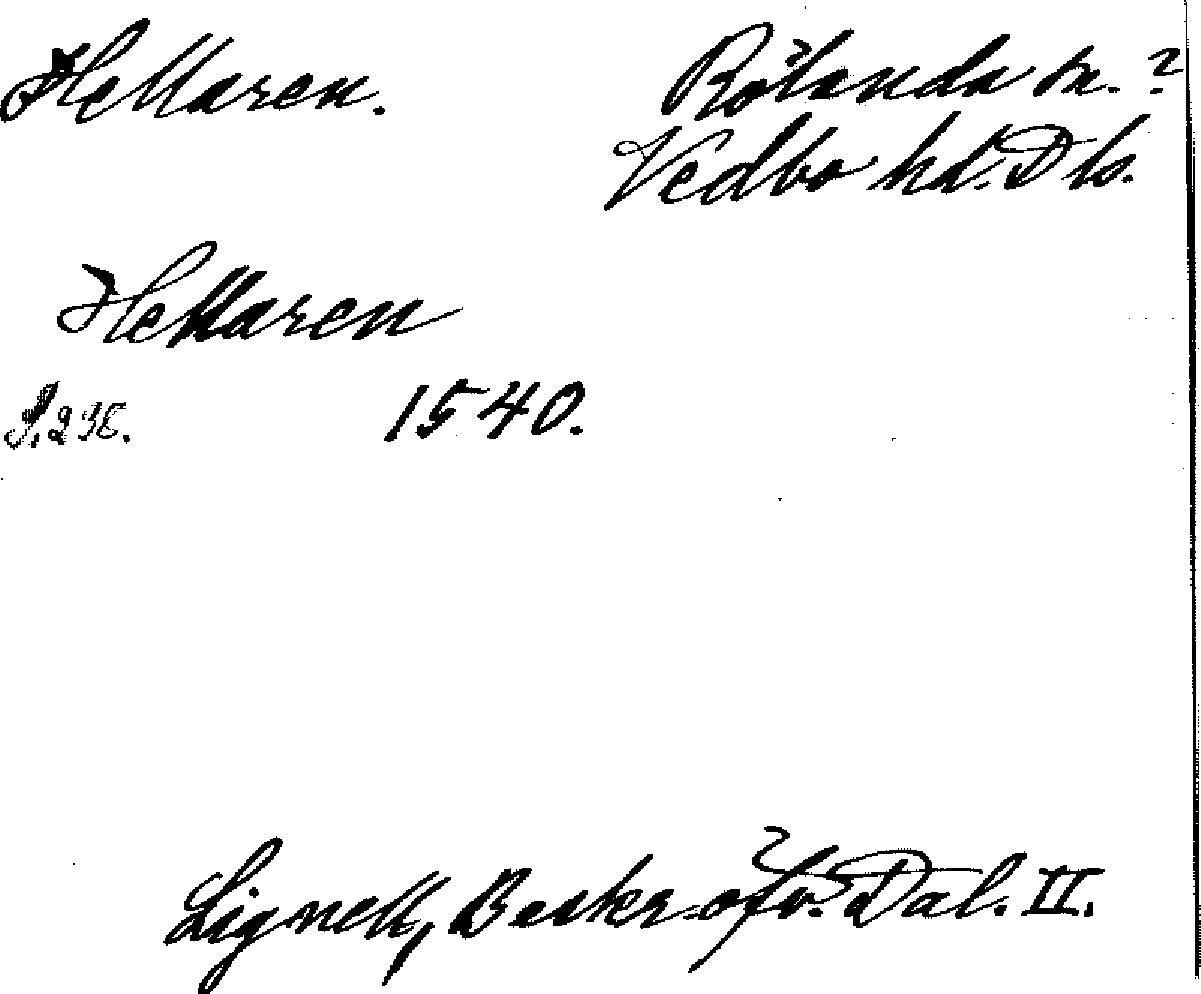 Hellaren.
Rölanda sn.?
Vedbo hd. Dls.
Hellaren
S. 298.
1540.
Lignell, Beskr. öfv. Dal. II.